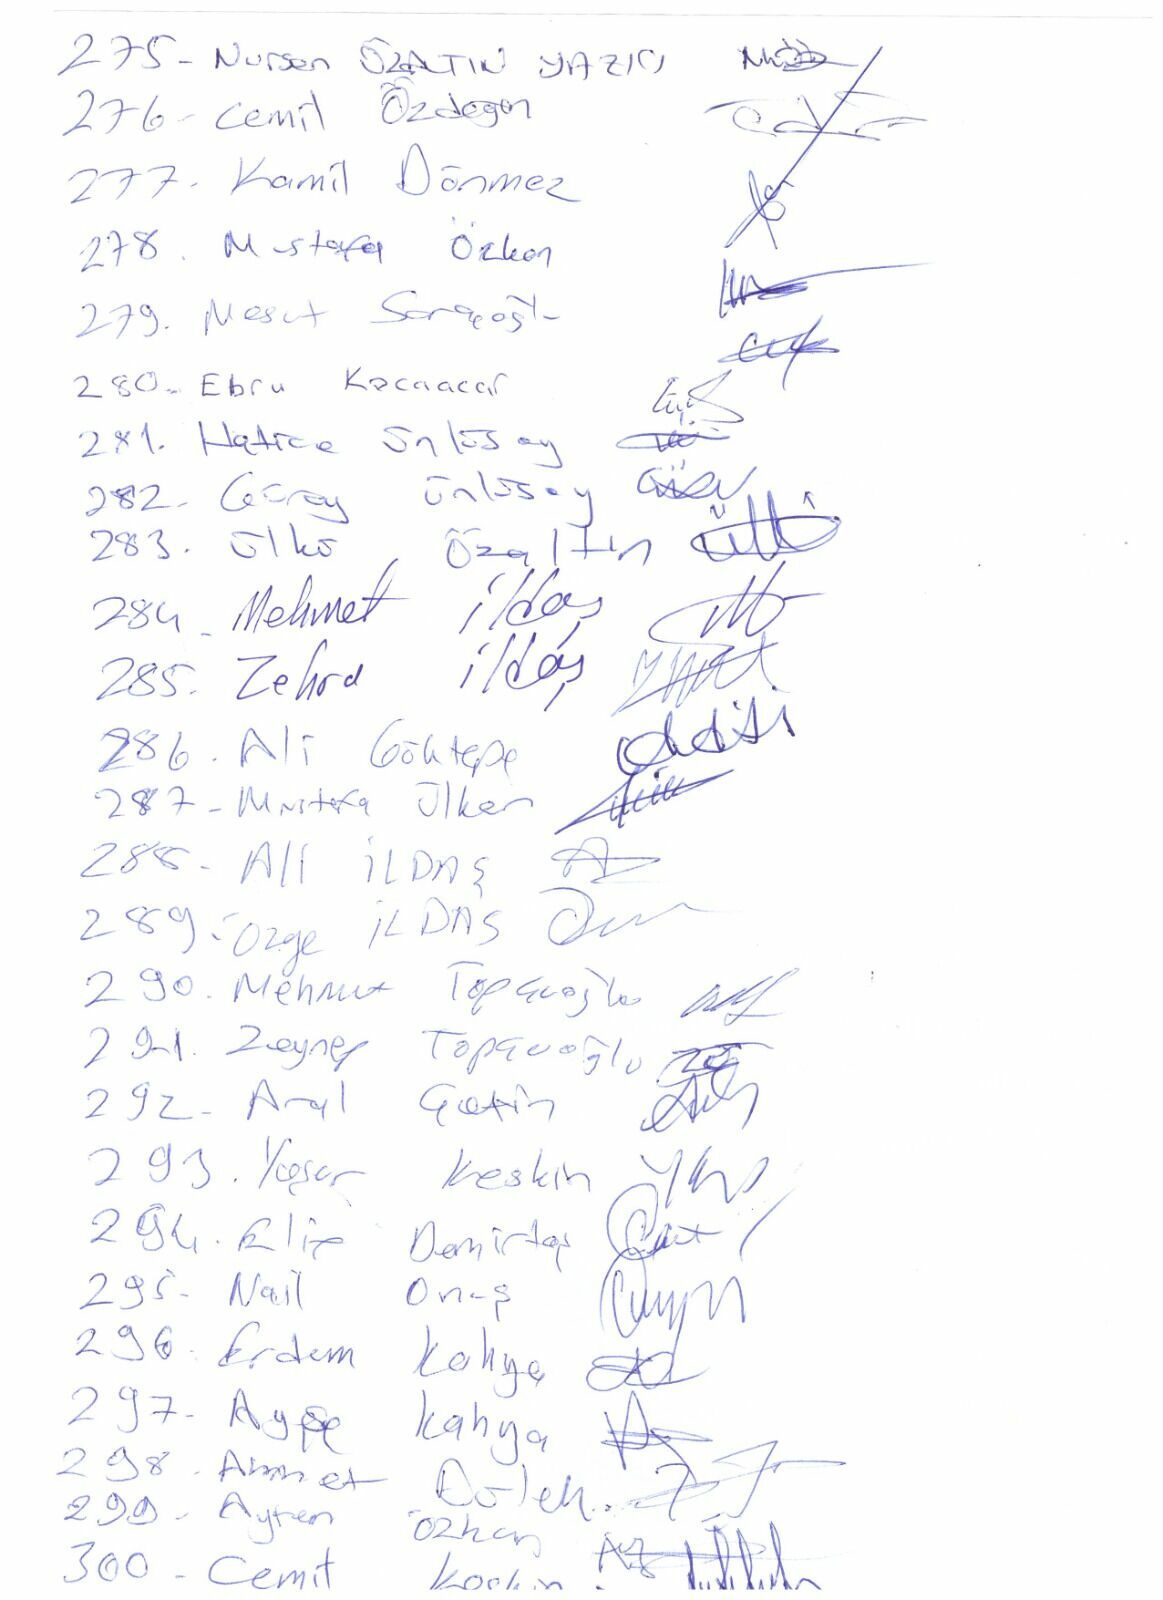 275- Nursen ÖZALTIN YAZICI
276- Cemil Özdegen
277- Kamil Dönmez
278. Mustafa Özkan
279. Mesut Saraçoğlu
280- Ebru Kocaacar
281. Hatice Ünlüsoy
282- Güray Ünlüsoy
283. Ülkü Özaltın
284- Mehmet ildaş
285. Zehra ildaş
286. Ali Göktepe
287- Mustafa Ülker
288- Ali İLDAŞ
289- Özge İLDAŞ
290. Mehmet Topçuoğlu
291. Zeynep Topçuoğlu
292- Çetin
293. Yaşar Keskin
294. Elif Demirtaş
295- Nail
296- Erdem Kahya
297- Ayşe Kahya
298- Ahmet Dölek
299- Ayten Özkan
300- Cemil Keskin